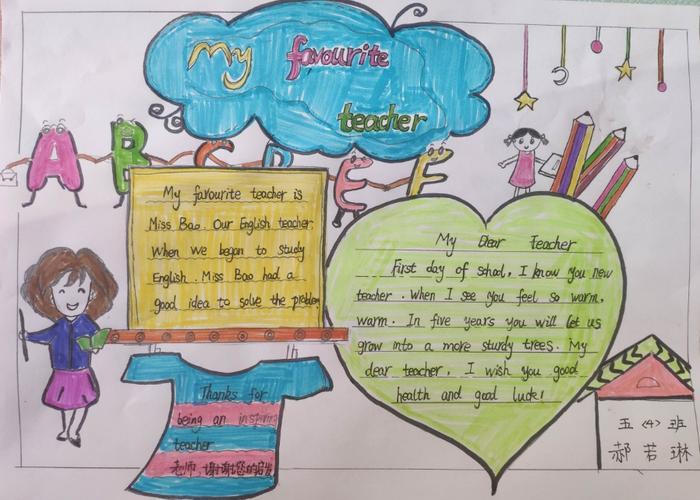 My favourite
teacher
A B C D E F
My favourite teacher is
Miss Bao. Our English teacher.
When we began to study
English. Miss Bao had a
good idea to solve the problem
My Dear Teacher
First day of school, I know you new
teacher. When I see you feel so warm,
warm. In five years you will let us
grow into a more sturdy trees. My
dear teacher, I wish you good
health and good luck!
Thanks for
being an inspiring
teacher
老师,谢谢您的启发
五<4>班
郝若琳